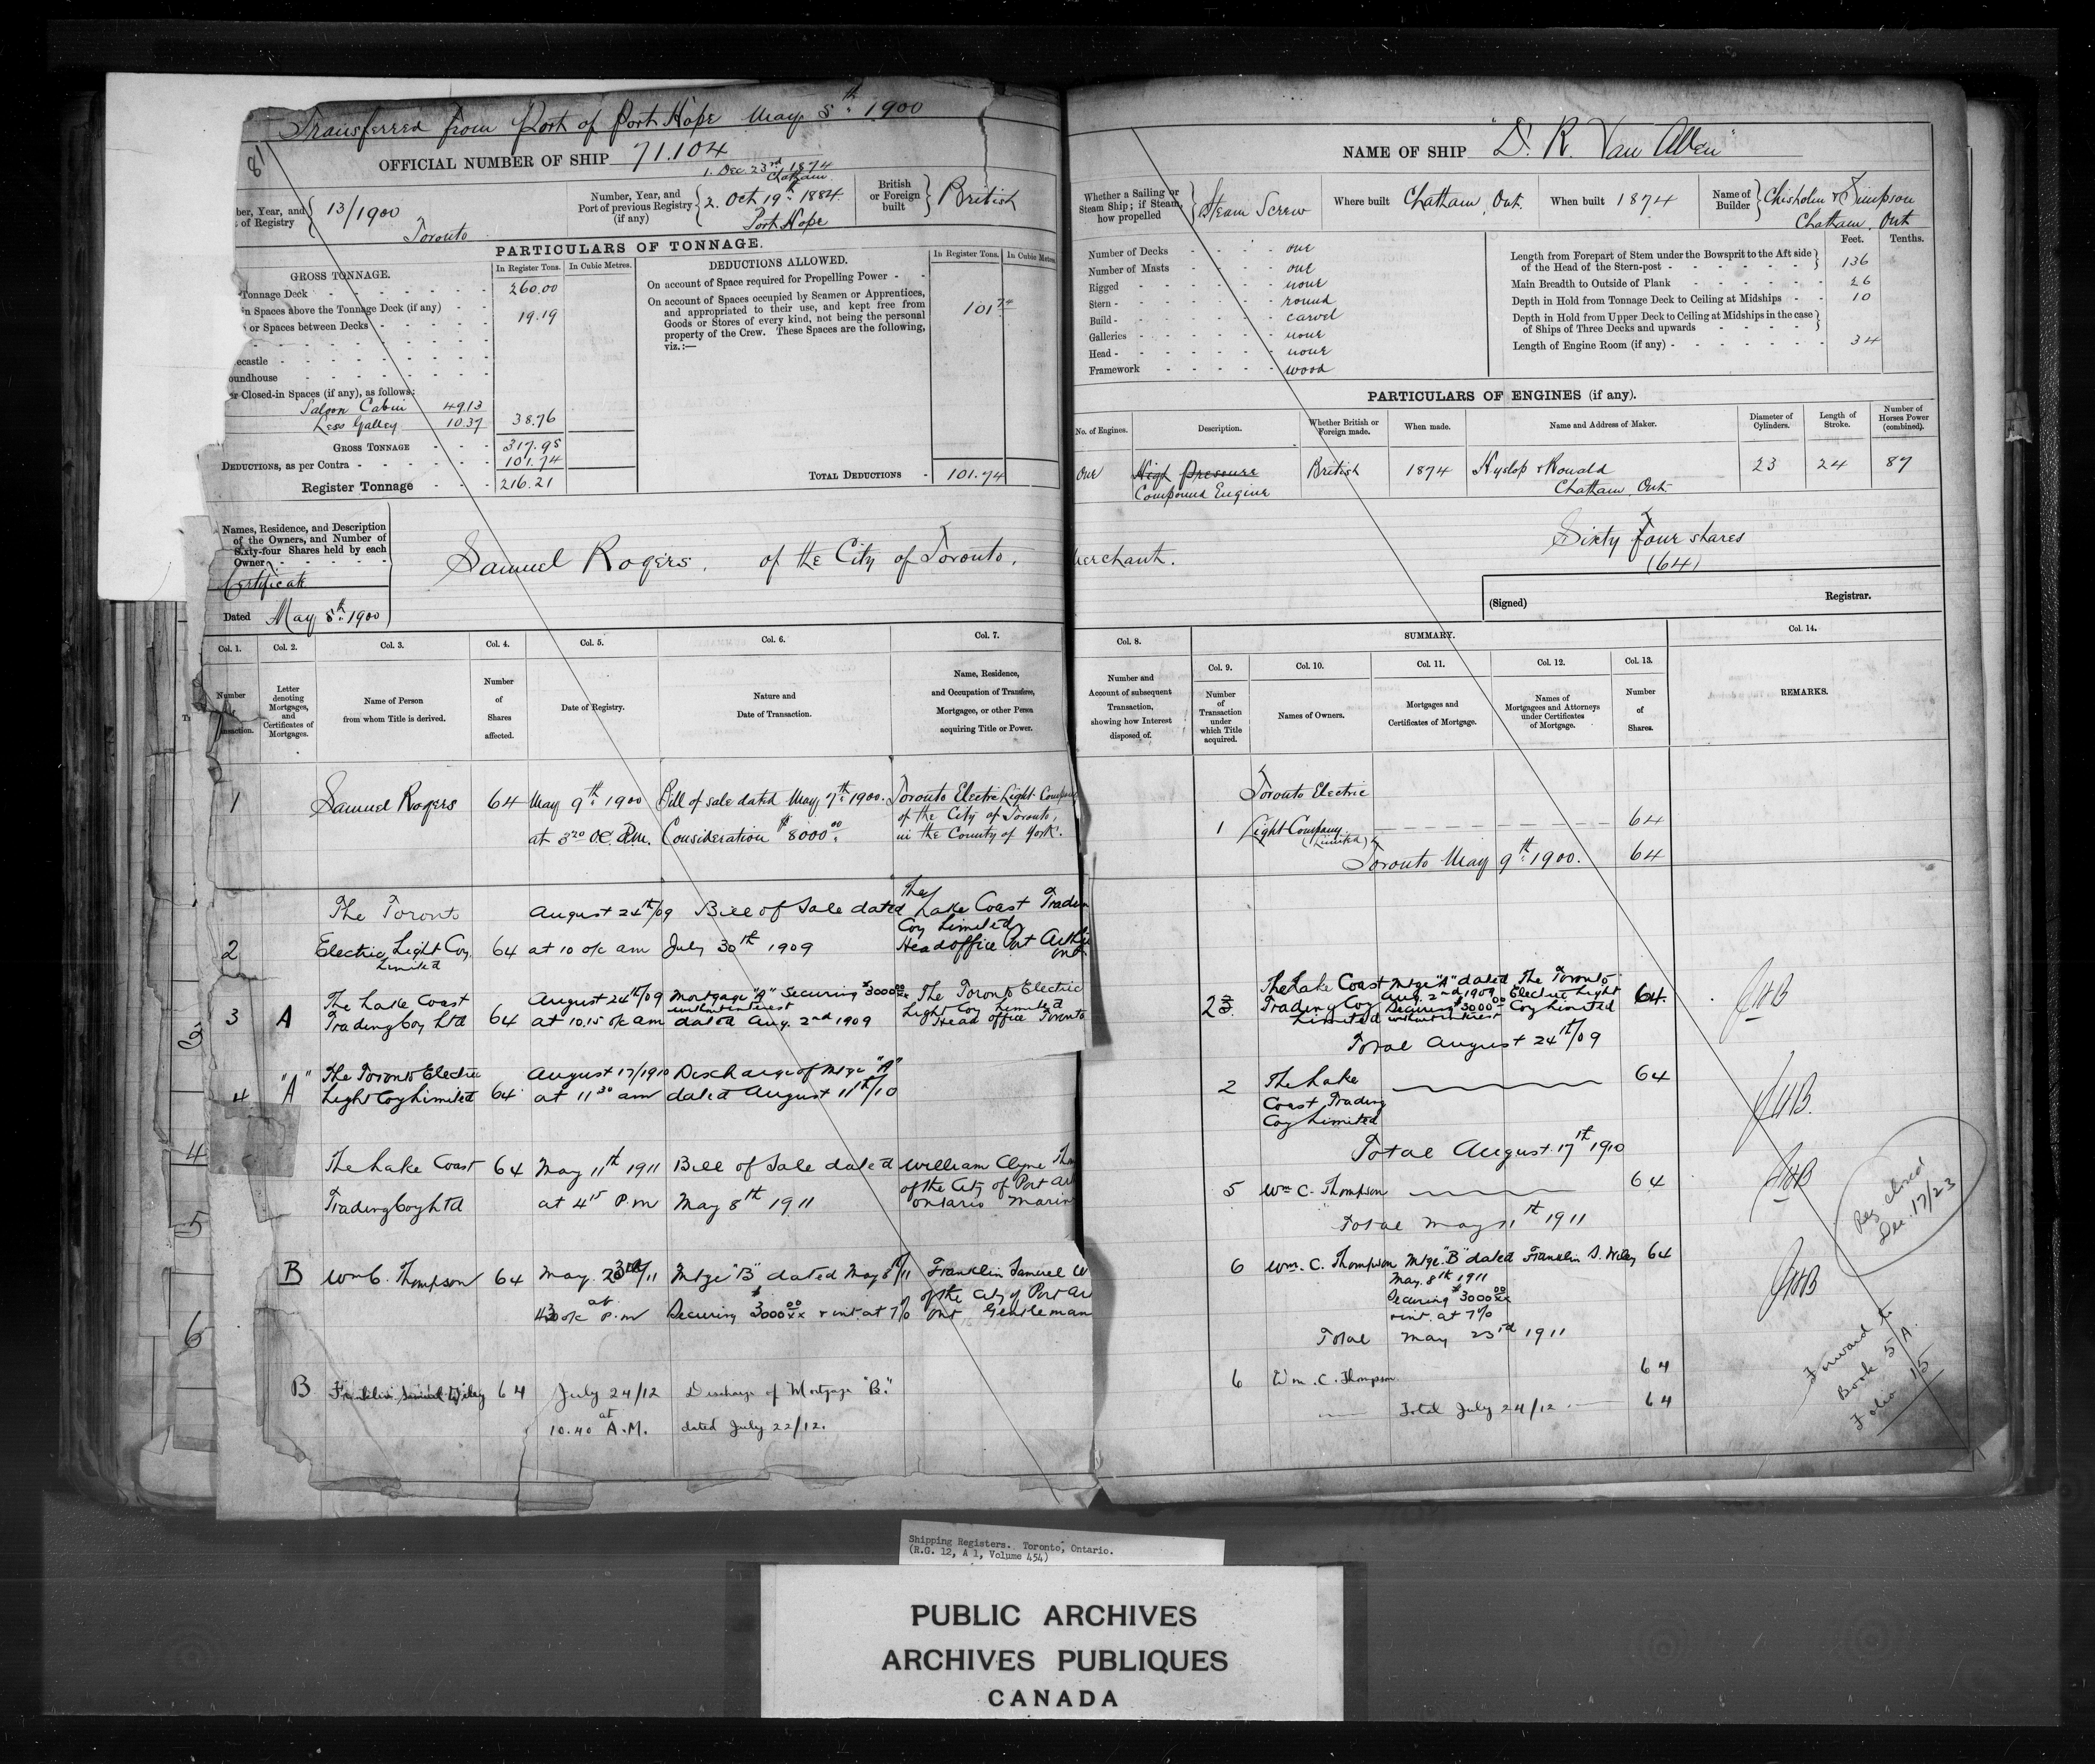 Transferred from Port of Port Hope May 8th 1900
81
OFFICIAL NUMBER OF SHIP 71.104
ber, Year, and
of Registry
13/1900
Toronto
Number, Year, and
Port of previous Registry
(if any)
1. Dec. 23rd 1874
Chatham
2. Oct 19th 1884.
Port Hope
British
or Foreign
built
British
PARTICULARS OF TONNAGE.
GROSS TONNAGE.
In Register Tons.
In Cubic Metres.
Tonnage Deck
260.00
n Spaces above the Tonnage Deck (if any)
or Spaces between Decks
19.19
ecastle
oundhouse
r Closed-in Spaces (if any), as follows:
Saloon Cabin 49.13
Less Galley 10.37
38.76
GROSS TONNAGE
317.95
DEDUCTIONS, as per Contra
101.74
Register Tonnage
216.21
DEDUCTIONS ALLOWED.
In Register Tons.
In Cubic Metres
On account of Space required for Propelling Power
On account of Spaces occupied by Seamen or Apprentices,
and appropriated to their use, and kept free from
Goods or Stores of every kind, not being the personal
property of the Crew. These Spaces are the following,
viz.:—
101 74
TOTAL DEDUCTIONS
101.74
Names, Residence, and Description
of the Owners, and Number of
Sixty-four Shares held by each
Owner
Certificate
Dated May 8th 1900
Samuel Rogers, of the City of Toronto,
Col. 1.
Number
of
ansaction.
Col. 2.
Letter
denoting
Mortgages,
and
Certificates of
Mortgages.
Col. 3.
Name of Person
from whom Title is derived.
Col. 4.
Number
of
Shares
affected.
Col. 5.
Date of Registry.
Col. 6.
Nature and
Date of Transaction.
Col. 7.
Name, Residence,
and Occupation of Transferee,
Mortgagee, or other Person
acquiring Title or Power.
1 Samuel Rogers 64 May 9th 1900 Bill of sale dated May 7th 1900. Toronto Electric Light Company
of the City of Toronto,
at 3 20 O.C. P.m. Consideration $8000 00. in the County of York.
The Toronto August 24th/09 Bill of Sale dated The Lake Coast Tradin
Coy Limited,
2 Electric Light Coy 64 at 10 o/c am July 30th 1909 Head office Port Arth
Limited Ont.
The Lake Coast August 24th/09 Mortgage "A" Securing $3000 00/xx The Toronto Electric
without interest Light Coy Limited
3 A Trading Coy Ltd 64 at 10.15 o/c am dated Aug. 2nd 1909 Head office Toronto
"A" The Toronto Electric August 17/1910 Discharge of Mtge "A"
4 Light Coy Limited 64 at 11 30 am dated August 11th/10
The Lake Coast 64 May 11th 1911 Bill of Sale dated William Clyne Thom
of the City of Port Ar
Trading Coy Ltd at 4 15 P.m May 8th 1911 Ontario Marin
B Wm C. Thompson 64 May 23rd/11 Mtge "B" dated May 8th/11 Franklin Samuel W
at of the City of Port Ar
430 o/c P.m Securing $3000 00/xx + int. at 7% Ont Gentleman
B Franklin Samuel Wiley 64 July 24/12 Discharge of Mortgage "B."
at
10.40 A.M. dated July 22/12.
3
4
5
6
NAME OF SHIP "D. R. Van Allen"
Whether a Sailing or
Steam Ship; if Steam,
how propelled
Steam Screw
Where built Chatham, Ont.
When built 1874
Name of
Builder
Chisholm & Simpson
Chatham, Ont
Number of Decks one
Number of Masts one
Rigged none
Stern round
Build carvel
Galleries none
Head none
Framework wood
Feet.
Tenths.
Length from Forepart of Stem under the Bowsprit to the Aft side
of the Head of the Stern-post 136
Main Breadth to Outside of Plank 26
Depth in Hold from Tonnage Deck to Ceiling at Midships 10
Depth in Hold from Upper Deck to Ceiling at Midships in the case
of Ships of Three Decks and upwards
Length of Engine Room (if any) 34
PARTICULARS OF ENGINES (if any).
No. of Engines.
Description.
Whether British or
Foreign made.
When made.
Name and Address of Maker.
Diameter of
Cylinders.
Length of
Stroke.
Number of
Horses Power
(combined).
One High Pressure British 1874 Hyslop & Ronald 23 24 87
Compound Engine Chatham, Ont.
Merchant.
Sixty Four shares
(64)
(Signed)
Registrar.
Col. 8.
Number and
Account of subsequent
Transaction,
showing how Interest
disposed of.
SUMMARY.
Col. 9.
Number
of
Transaction
under
which Title
acquired.
Col. 10.
Names of Owners.
Col. 11.
Mortgages and
Certificates of Mortgage.
Col. 12.
Names of
Mortgagees and Attorneys
under Certificates
of Mortgage.
Col. 13.
Number
of
Shares.
Col. 14.
REMARKS.
Toronto Electric
1 Light Company 64
(Limited)
Toronto May 9th 1900. 64
The Lake Coast Mtge "A" dated The Toronto
2 Trading Coy Aug. 2nd 1909 Electric Light 64.
Securing $3000 00 Coy Limited
Limited without interest
Total August 24th/09
2 The Lake 64
Coast Trading
Coy Limited
Total August 17th 1910
5 Wm C. Thompson 64
Total May 11th 1911
6 Wm. C. Thompson Mtge "B" dated Franklin S. Wiley 64
May 8th 1911
Securing $3000 00/xx
+ int. at 7%
Total May 23rd 1911
6 Wm. C. Thompson 64
Total July 24/12. 64
Reg closed
Dec. 17/23
Forward to
Book 5/A.
Folio 15
Shipping Registers. Toronto, Ontario.
(R.G. 12, A 1, Volume 454)
PUBLIC ARCHIVES
ARCHIVES PUBLIQUES
CANADA